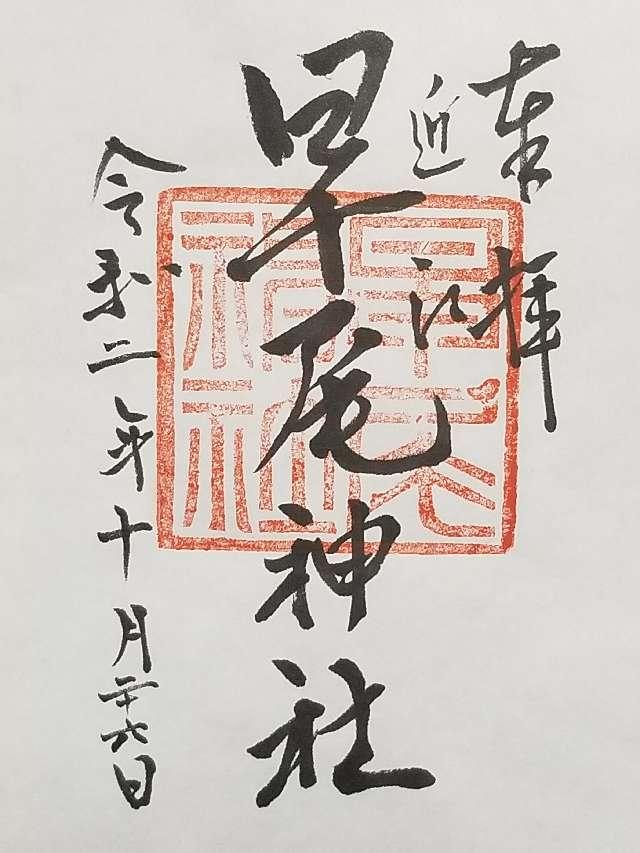 奉拝
近江
早尾神社
令和二年十月二十六日
早尾
神社